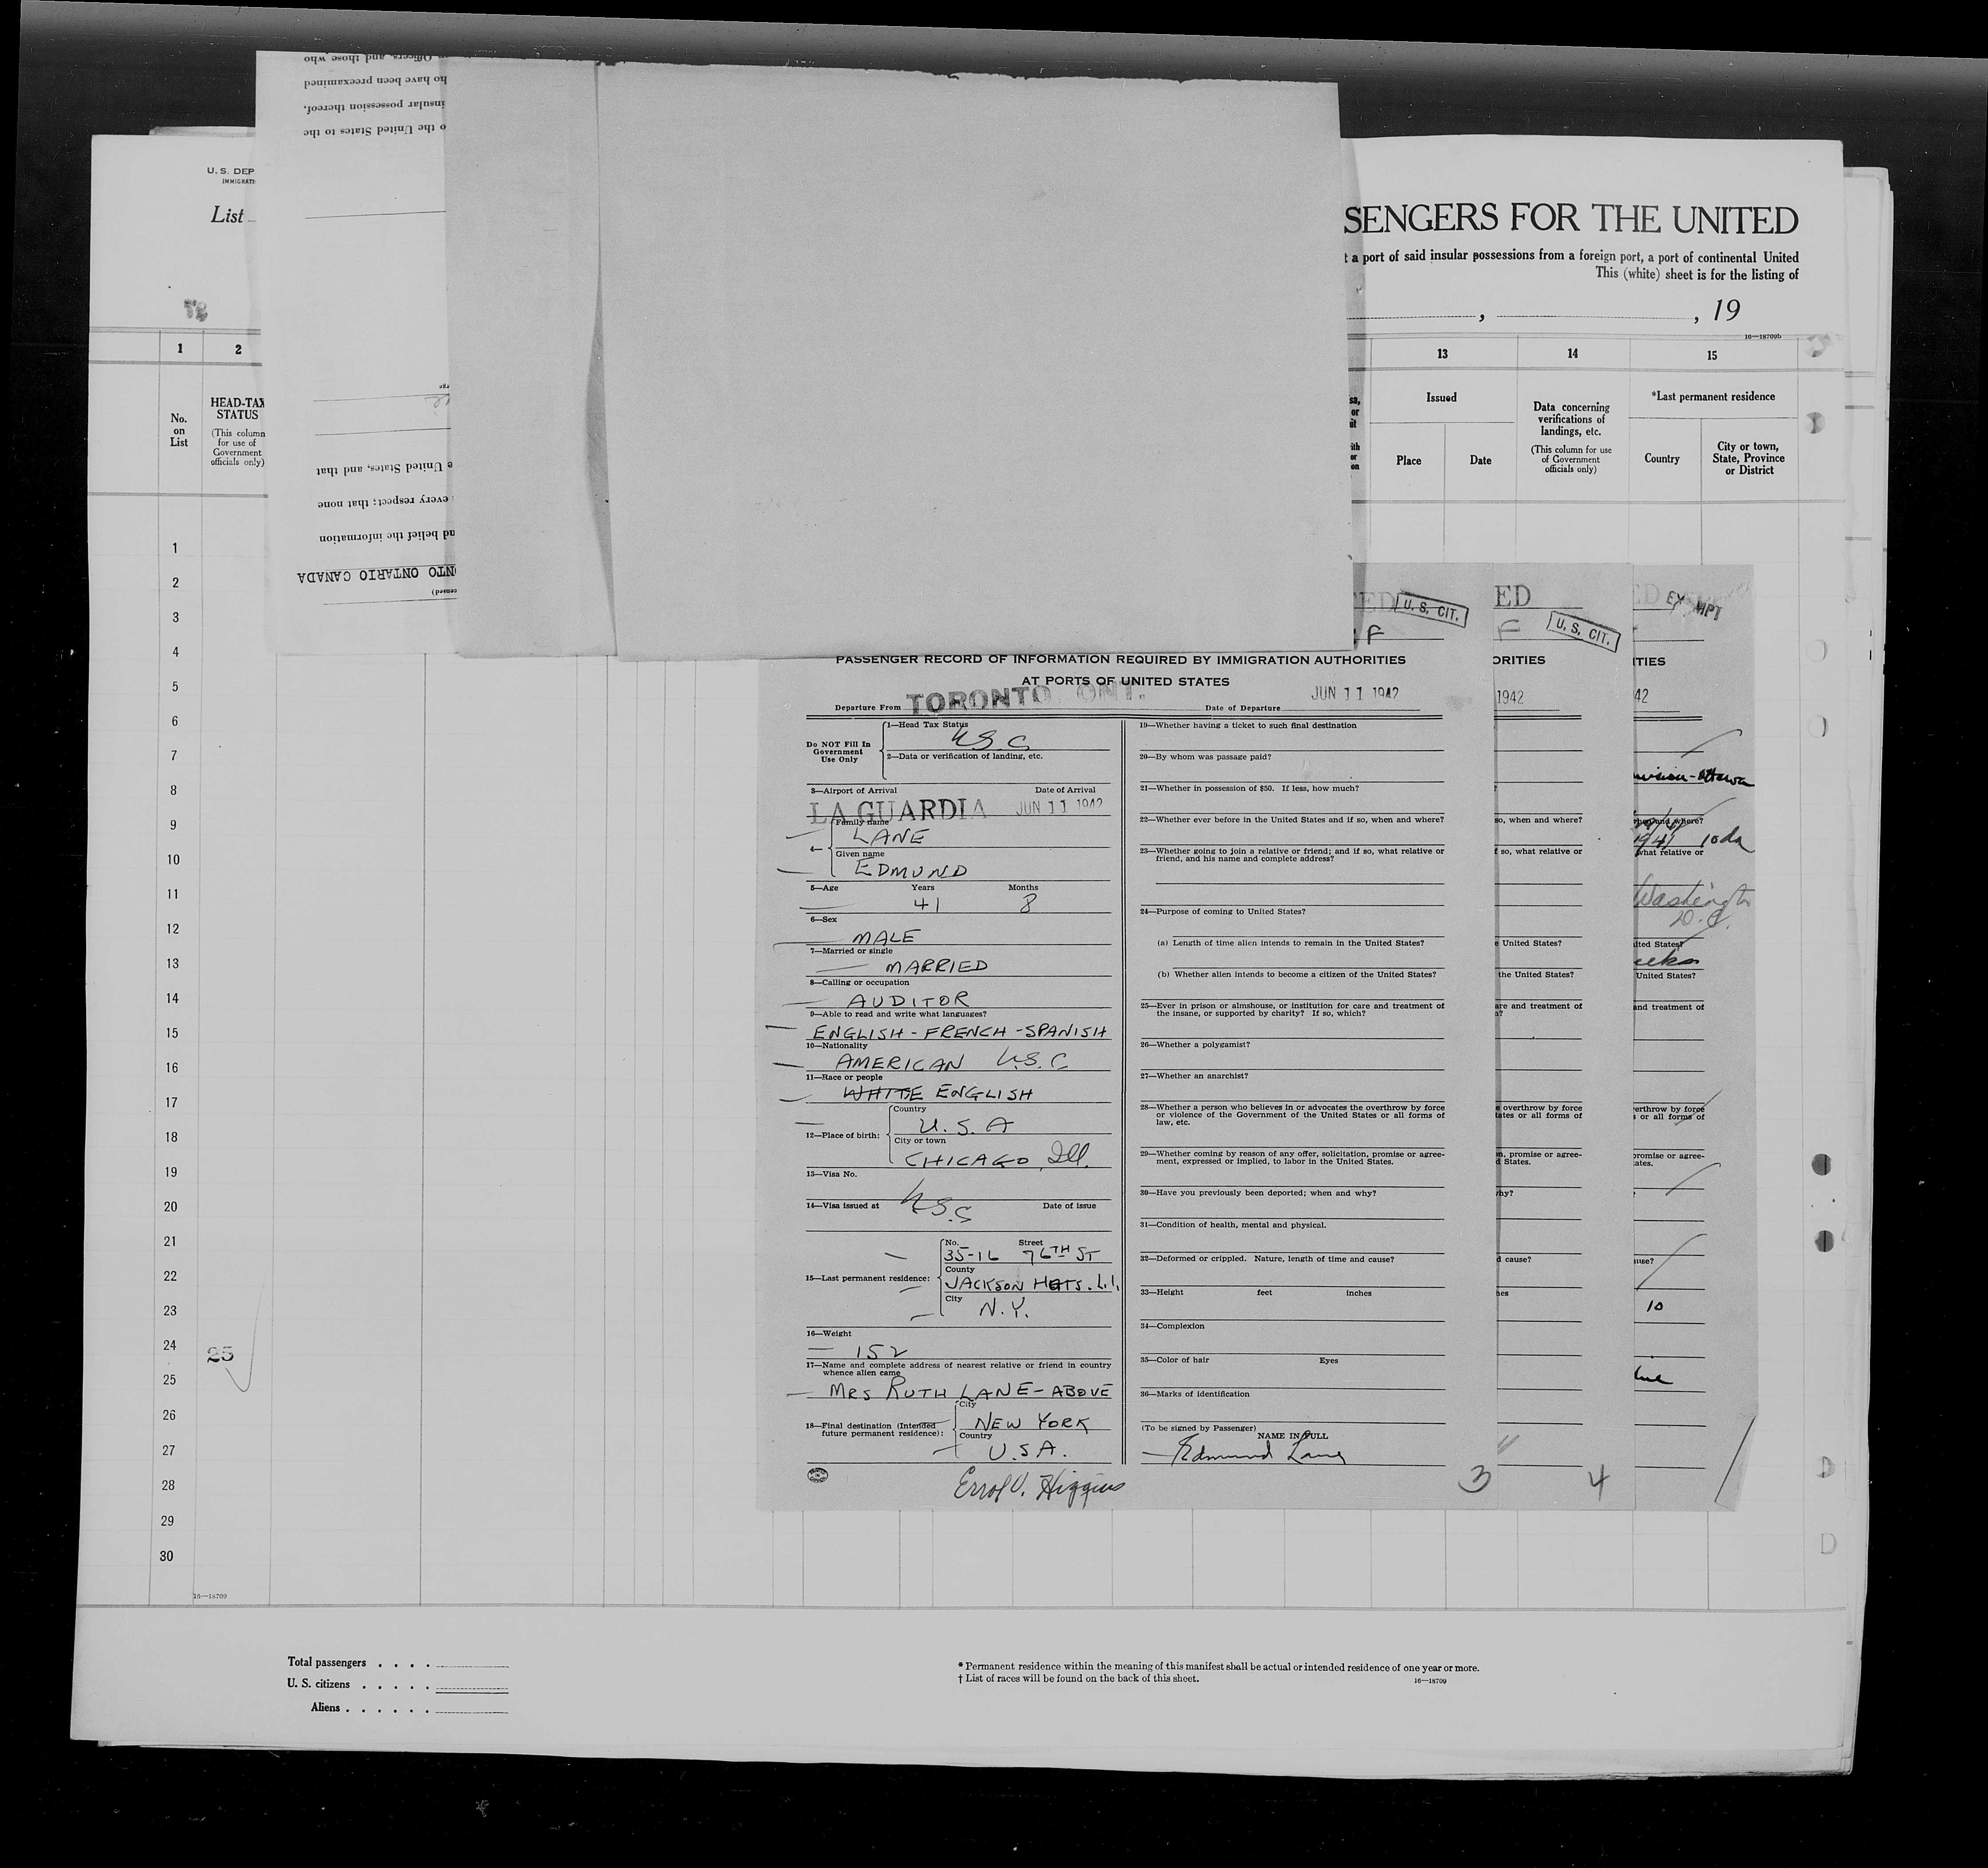 Officers, and those who
ho have been preexamined
insular possession thereof,
o the United States to the
U. S. DEP
IMMIGRATI
List
SENGERS FOR THE UNITED
t a port of said insular possessions from a foreign port, a port of continental United
This (white) sheet is for the listing of
, , 19
16—18709b
1 2 13 14 15
No.
on
List
HEAD-TAX
STATUS
(This column
for use of
Government
officials only)
Issued
Place Date
Data concerning
verifications of
landings, etc.
(This column for use
of Government
officials only)
*Last permanent residence
Country
City or town,
State, Province
or District
e United States, and that
every respect; that none
nd belief the information
NTO ONTARIO CANADA
1
2
3
4
5
6
7
8
9
10
11
12
13
14
15
16
17
18
19
20
21
22
23
24
25
26
27
28
29
30
25
16—18709
U. S. CIT.
F
PASSENGER RECORD OF INFORMATION REQUIRED BY IMMIGRATION AUTHORITIES
AT PORTS OF UNITED STATES
Departure From TORONTO, ONT. Date of Departure JUN 11 1942
Do NOT Fill In
Government
Use Only
1—Head Tax Status
U.S.C
2—Data or verification of landing, etc.
3—Airport of Arrival Date of Arrival
LA GUARDIA JUN 11 1942
4—
Family name
LANE
Given name
EDMUND
5—Age Years Months
41 8
6—Sex
MALE
7—Married or single
MARRIED
8—Calling or occupation
AUDITOR
9—Able to read and write what languages?
ENGLISH - FRENCH - SPANISH
10—Nationality
AMERICAN U.S.C
11—Race or people
WHITE ENGLISH
12—Place of birth:
Country
U.S.A
City or town
CHICAGO, Ill.
13—Visa No.
14—Visa issued at USC Date of issue
15—Last permanent residence:
No. Street
35-16 76TH ST
County
JACKSON HGTS. L.I.
City
N.Y.
16—Weight
152
17—Name and complete address of nearest relative or friend in country
whence alien came
MRS RUTH LANE - ABOVE
18—Final destination (Intended
future permanent residence):
City
NEW YORK
Country
U.S.A.
Errol V. Higgins
19—Whether having a ticket to such final destination
20—By whom was passage paid?
21—Whether in possession of $50. If less, how much?
22—Whether ever before in the United States and if so, when and where?
23—Whether going to join a relative or friend; and if so, what relative or
friend, and his name and complete address?
24—Purpose of coming to United States?
(a) Length of time alien intends to remain in the United States?
(b) Whether alien intends to become a citizen of the United States?
25—Ever in prison or almshouse, or institution for care and treatment of
the insane, or supported by charity? If so, which?
26—Whether a polygamist?
27—Whether an anarchist?
28—Whether a person who believes in or advocates the overthrow by force
or violence of the Government of the United States or all forms of
law, etc.
29—Whether coming by reason of any offer, solicitation, promise or agree-
ment, expressed or implied, to labor in the United States.
30—Have you previously been deported; when and why?
31—Condition of health, mental and physical.
32—Deformed or crippled. Nature, length of time and cause?
33—Height feet inches
34—Complexion
35—Color of hair Eyes
36—Marks of identification
(To be signed by Passenger)
NAME IN FULL
Edmund Lane
3
ED
F
U. S. CIT.
ORITIES
1942
so, when and where?
f so, what relative or
e United States?
the United States?
are and treatment of
e overthrow by force
ates or all forms of
n, promise or agree-
d States.
hy?
d cause?
hes
4
EXEMPT
ITIES
42
what relative or
Washington
D.C.
ited States?
United States?
and treatment of
erthrow by force
s or all forms of
promise or agree-
ates.
use?
10
Total passengers . . . .
U. S. citizens . . . . .
Aliens . . . . . .
* Permanent residence within the meaning of this manifest shall be actual or intended residence of one year or more.
† List of races will be found on the back of this sheet.
16—18709